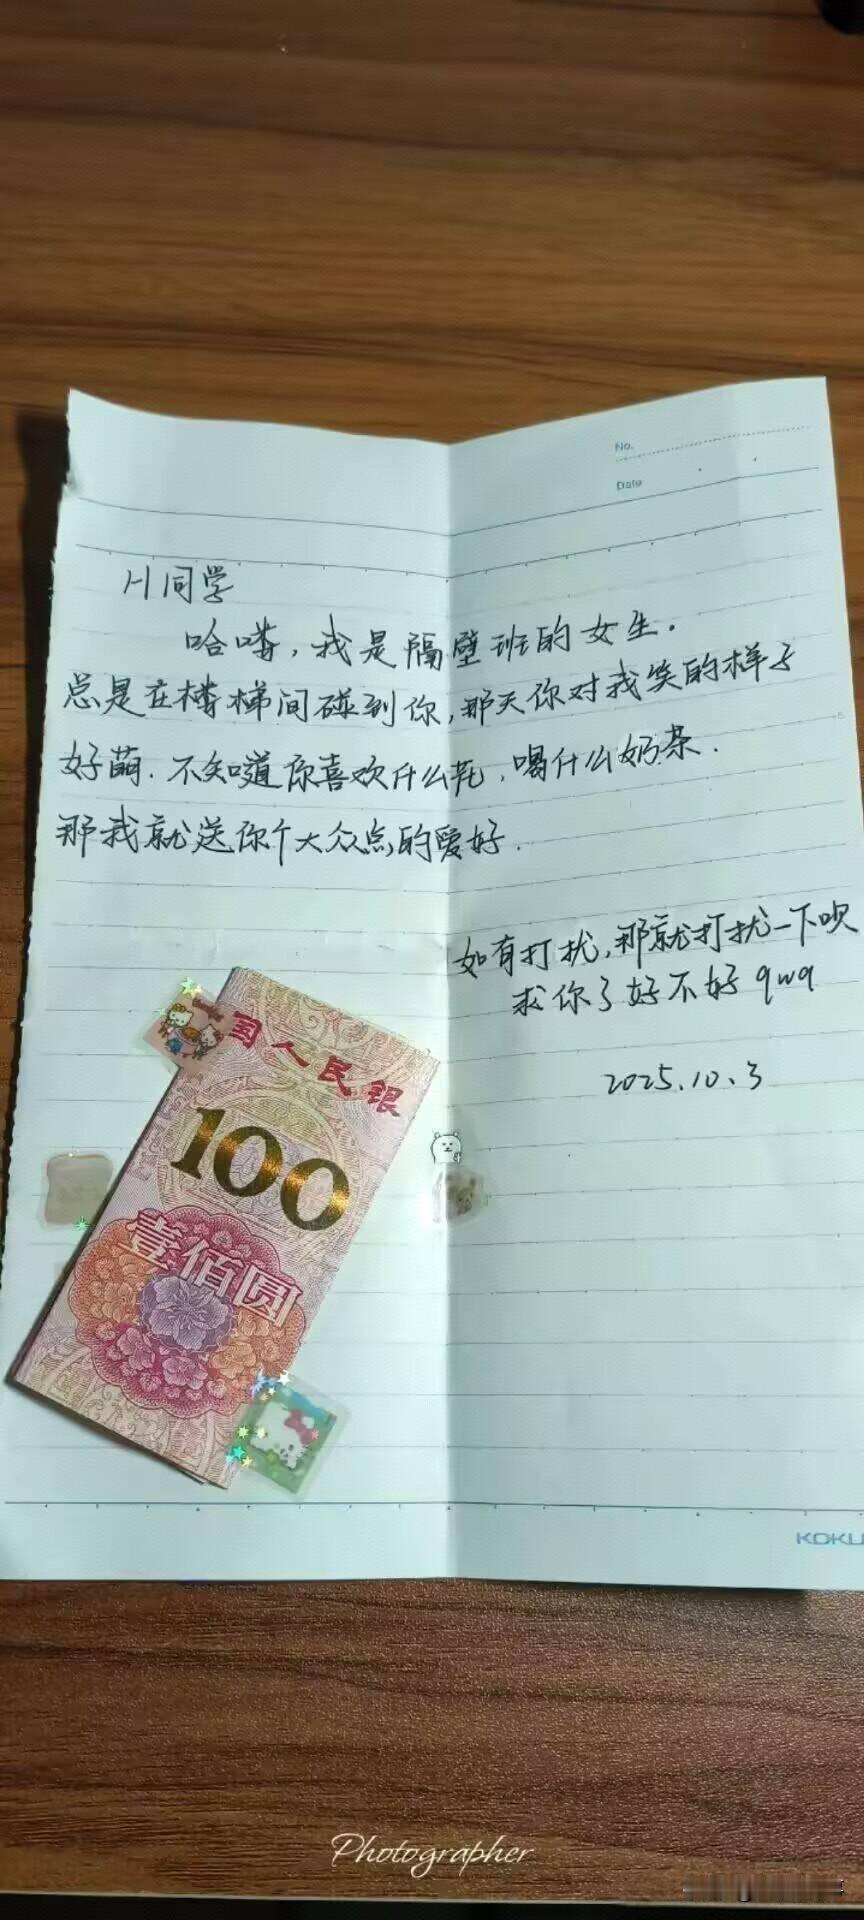 No.
Date
H同学
哈喽，我是隔壁班的女生.
总是在楼梯间碰到你，那天你对我笑的样子
好萌.不知道你喜欢什么花，喝什么奶茶.
那我就送你个大众点的爱好.
如有打扰，那就打扰一下呗
求你了好不好qwq
2025.10.3
国人民银
100
壹佰圆
KOKU
Photographer